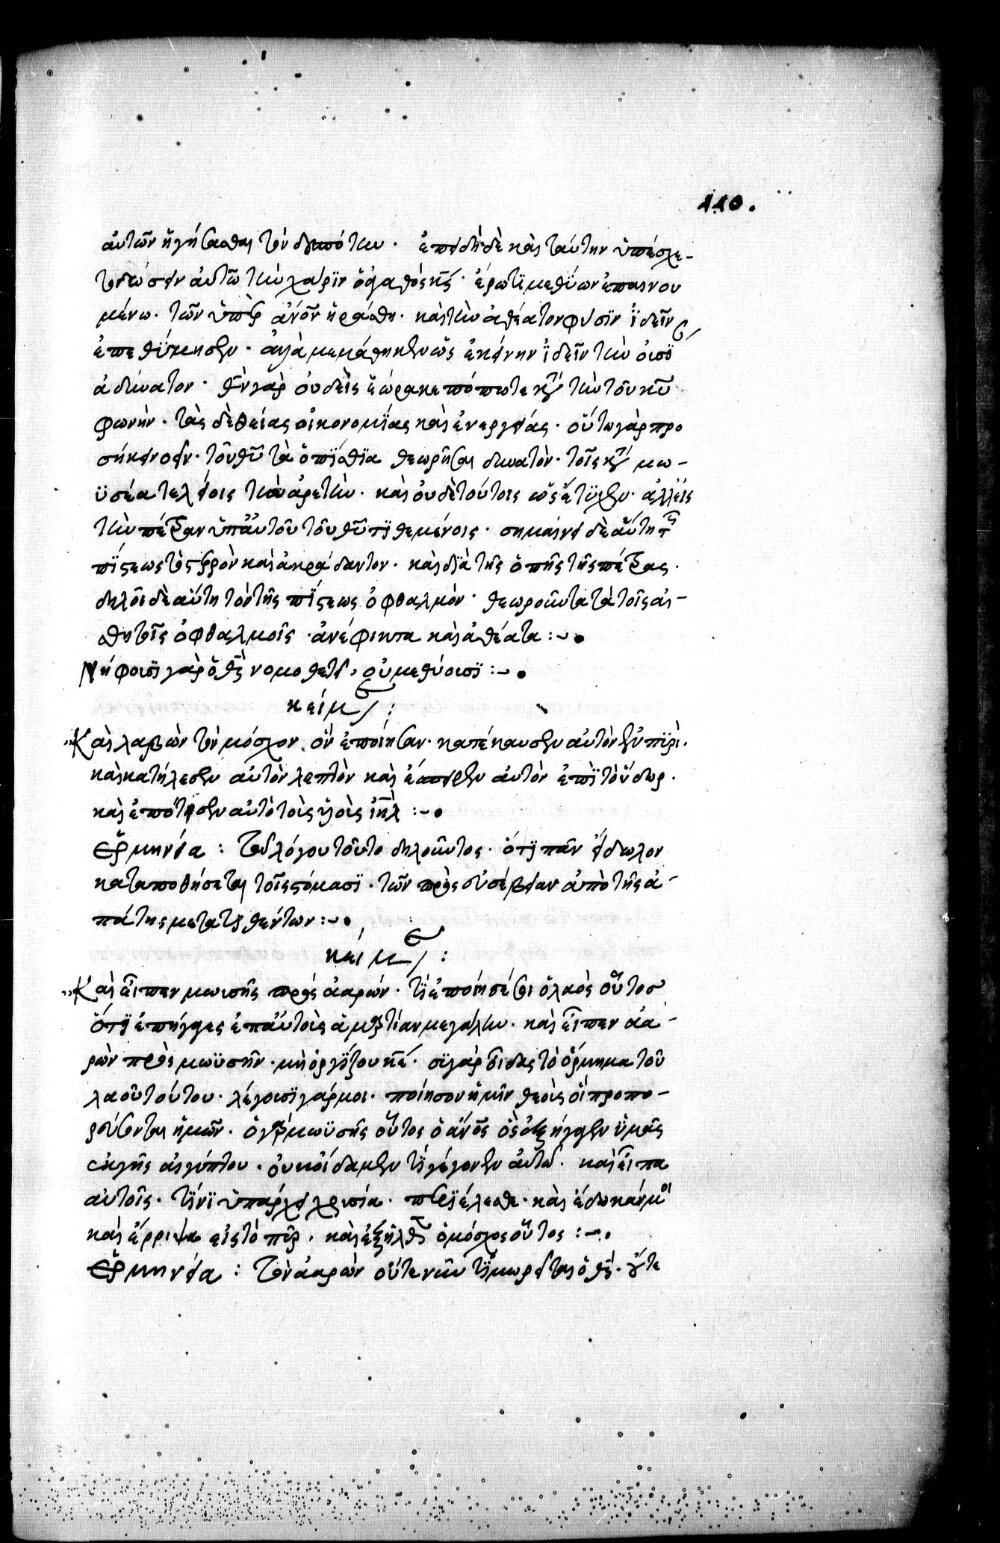 110.
αὐτῶν ἡγήσασθαι τὸν δεσπότην. ἐπειδὴ δὲ καὶ ταύτην ὑπέσχε-
το δώσειν αὐτῷ τὴν χάριν ὁ ἀγαθὸς κς̄· ἔρωτι μεθύων ἐπαινου
μένω. τῶν ὑπὲρ ἄνο̄ν ἠράσθη. καὶ τὴν ἀθέατον φύσϊν ϊδεῖν
ἐπεθύμησεν. ἀλλὰ μεμάθηκεν ὡς ἐκείνην ϊδεῖν τὴν οὐσί
ἀδύνατον. θν̄ γὰρ οὐδεὶς ἑώρακε πόποτε κτ̀ τὴν τοῦ κῡ
φωνήν. τὰς δὲ θείας οἰκονομίας καὶ ἐνεργείας. οὕτω γὰρ προ
σήκει νοεῖν. τοῦ θῡ τὰ ὀπίσθϊα θεωρῆσαι δυνατόν. τοῖς κτ̀ μω-
ϋσέα τελείοις τὴν ἀρετήν. καὶ οὐδὲ τούτοις ὡς ἔτυχεν. ἀλλ' εἰς
τὴν πέτραν ὑπ' αὐτοῦ τοῦ θῡ τιθεμένοις. σημαίνει δὲ αὕτη τ
πίστεως τὸ στερρὸν καὶ ἀκράδαντον. καὶ διὰ τῆς ὀπῆς τῆς πέτρας.
δηλοῖ δὲ αὕτη τὸν τῆς πίστεως ὀφθαλμόν. θεωροῦντα τὰ τοῖς αἰ-
σθητοῖς ὀφθαλμοῖς ἀνέφικτα καὶ ἀθέατα :~
Νήφουσϊ γὰρ ὁ θς̄ νομοθετεῖ, οὐ μεθύουσϊ :~
κείμ :
Καὶ λαβὼν τὸν μόσχον ὃν ἐποίησαν. κατέκαυσεν αὐτὸν ἐν πϋρί.
καὶ κατήλεσεν αὐτὸν λεπτὸν καὶ ἔσπειρεν αὐτὸν ἐπὶ τὸ ὕδωρ.
καὶ ἐπότισεν αὐτὸ τοὺς υἱοὺς ιη̄λ :~
Ἑρμηνεία : τοῦ λόγου τοῦτο δηλοῦντος. ὅτϊ πᾶν εἴδωλον
καταποθήσεται τοῖς στόμασϊ. τῶν πρὸς εὐσέβειαν ἀπὸ τῆς ἀ-
πάτης μετατεθέντων :~
κείμ :
Καὶ εἶπεν μωυσῆς πρὸς ἀαρών. τί ἐποίησέ σοι ὁ λαὸς οὗτος
ὅτϊ ἐπήγαγες ἐπ' αὐτοὺς ἁμαρτίαν μεγάλην. καὶ εἶπεν ἀα-
ρὼν πρὸς μωϋσῆν. μὴ ὀργίζου κε̄. σὺ γὰρ οἶδας τὸ ὅρμημα τοῦ
λαοῦ τούτου. λέγουσϊ γάρ μοι. ποίησον ἡμῖν θεοὺς οἳ προπο-
ρεύσονται ἡμῶν. ὁ γὰρ μωϋσῆς οὗτος ὁ ἄνο̄ς ὃς ἐξήγαγεν ἡμᾶς
ἐκ γῆς αἰγύπτου. οὐκ οἴδαμεν τί γέγονεν αὐτῷ. καὶ εἶπα
αὐτοῖς. τίνϊ ὑπάρχει χρυσία. περϊέλεσθε. καὶ ἔδωκάν μοι
καὶ ἔρριψα εἰς τὸ πῦρ. καὶ ἐξῆλθεν ὁ μόσχος οὗτος :~
Ἑρμηνεία : τὸν ἀαρὼν οὔτε νῦν τιμωρεῖται ὁ θς̄. οὔτε